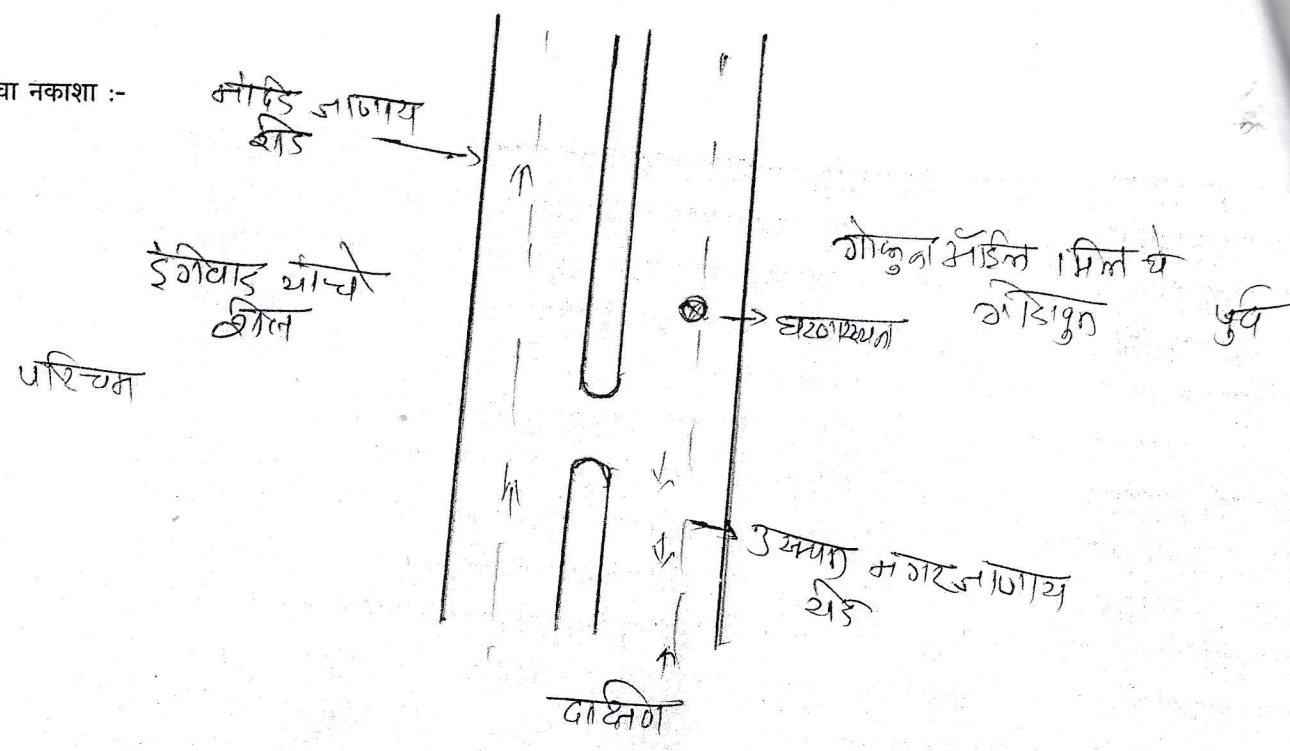 चा नकाशा :-
नांदेड जाणारा
रोड
इंगेवाड यांचे
शेत
पश्चिम
गोकुळ ऑईल मिल चे
गोडावुन
पुर्व
घटनास्थळ
नगर जाणारा
रोड
दक्षिण